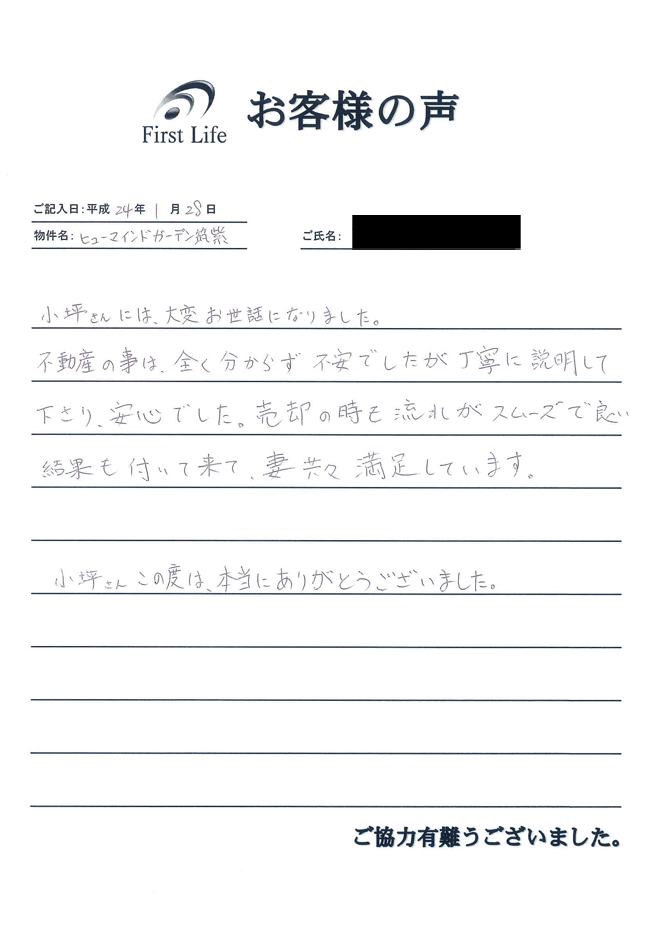 First Life
お客様の声
ご記入日:平成 24年 1月 28日
物件名: ヒューマインドガーデン筑紫
ご氏名:
小坪さんには、大変お世話になりました。
不動産の事は、全く分からず 不安でしたが丁寧に説明して
下さり、安心でした。売却の時も流れがスムーズで良い
結果も付いて来て、妻共々 満足しています。
小坪さん この度は、本当にありがとうございました。
ご協力有難うございました。